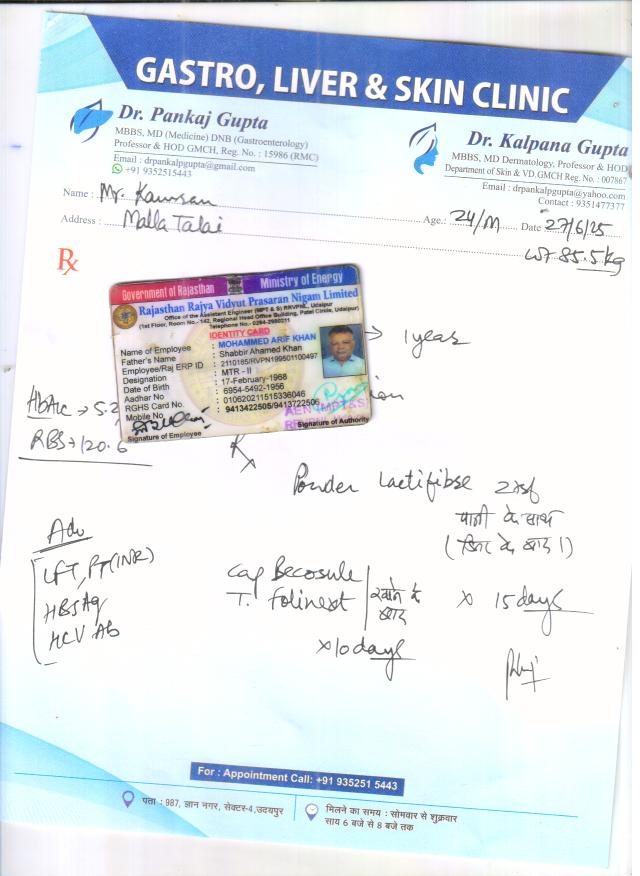 GASTRO, LIVER & SKIN CLINIC
Dr. Pankaj Gupta
MBBS, MD (Medicine) DNB (Gastroenterology)
Professor & HOD GMCH, Reg. No. : 15986 (RMC)
Email : drpankalpgupta@gmail.com
+91 9352515443
Dr. Kalpana Gupta
MBBS, MD Dermatology, Professor & HOD
Department of Skin & VD.GMCH Reg. No : 007867
Email : drpankalpgupta@yahoo.com
Contact : 9351477377
Name : Mr. Kamran
Age.: 24/M Date 27/6/25
Address : Malla Talai
WT 85.5kg
Rx
Government of Rajasthan Ministry of Energy
Rajasthan Rajya Vidyut Prasaran Nigam Limited
Office of the Assistant Engineer (MPT & S) RRVPNL, Udaipur
(1st Floor, Room No.- 142, Regional Head Office Building, Patel Circle, Udaipur)
Telephone No.- 0294-2980211
IDENTITY CARD
Name of Employee : MOHAMMED ARIF KHAN
Father's Name : Shabbir Ahamed Khan
Employee/Raj ERP ID : 2110165/RVPN199501100497
Designation : MTR - II
Date of Birth : 17-February-1968
Aadhar No : 6954-5492-1956
RGHS Card No. : 010620211515336046
Mobile No : 9413422505/9413722506
AEN (MPT&S)
Signature of Employee
Signature of Authority
→ 1 year
HbA1c → 5.2
RBS → 120.6
Rx
Powder Lactifibse 2tsf
पानी के साथ
Adv
LFT, PT(INR)
HBSAg
HCV Ab
Cap Becosule
T. Folinext
खाने के बाद
x 15 days
x10 days
For : Appointment Call: +91 93525 15443
पता : 987, ज्ञान नगर, सेक्टर-4,उदयपुर
मिलने का समय : सोमवार से शुक्रवार
साय 6 बजे से 8 बजे तक